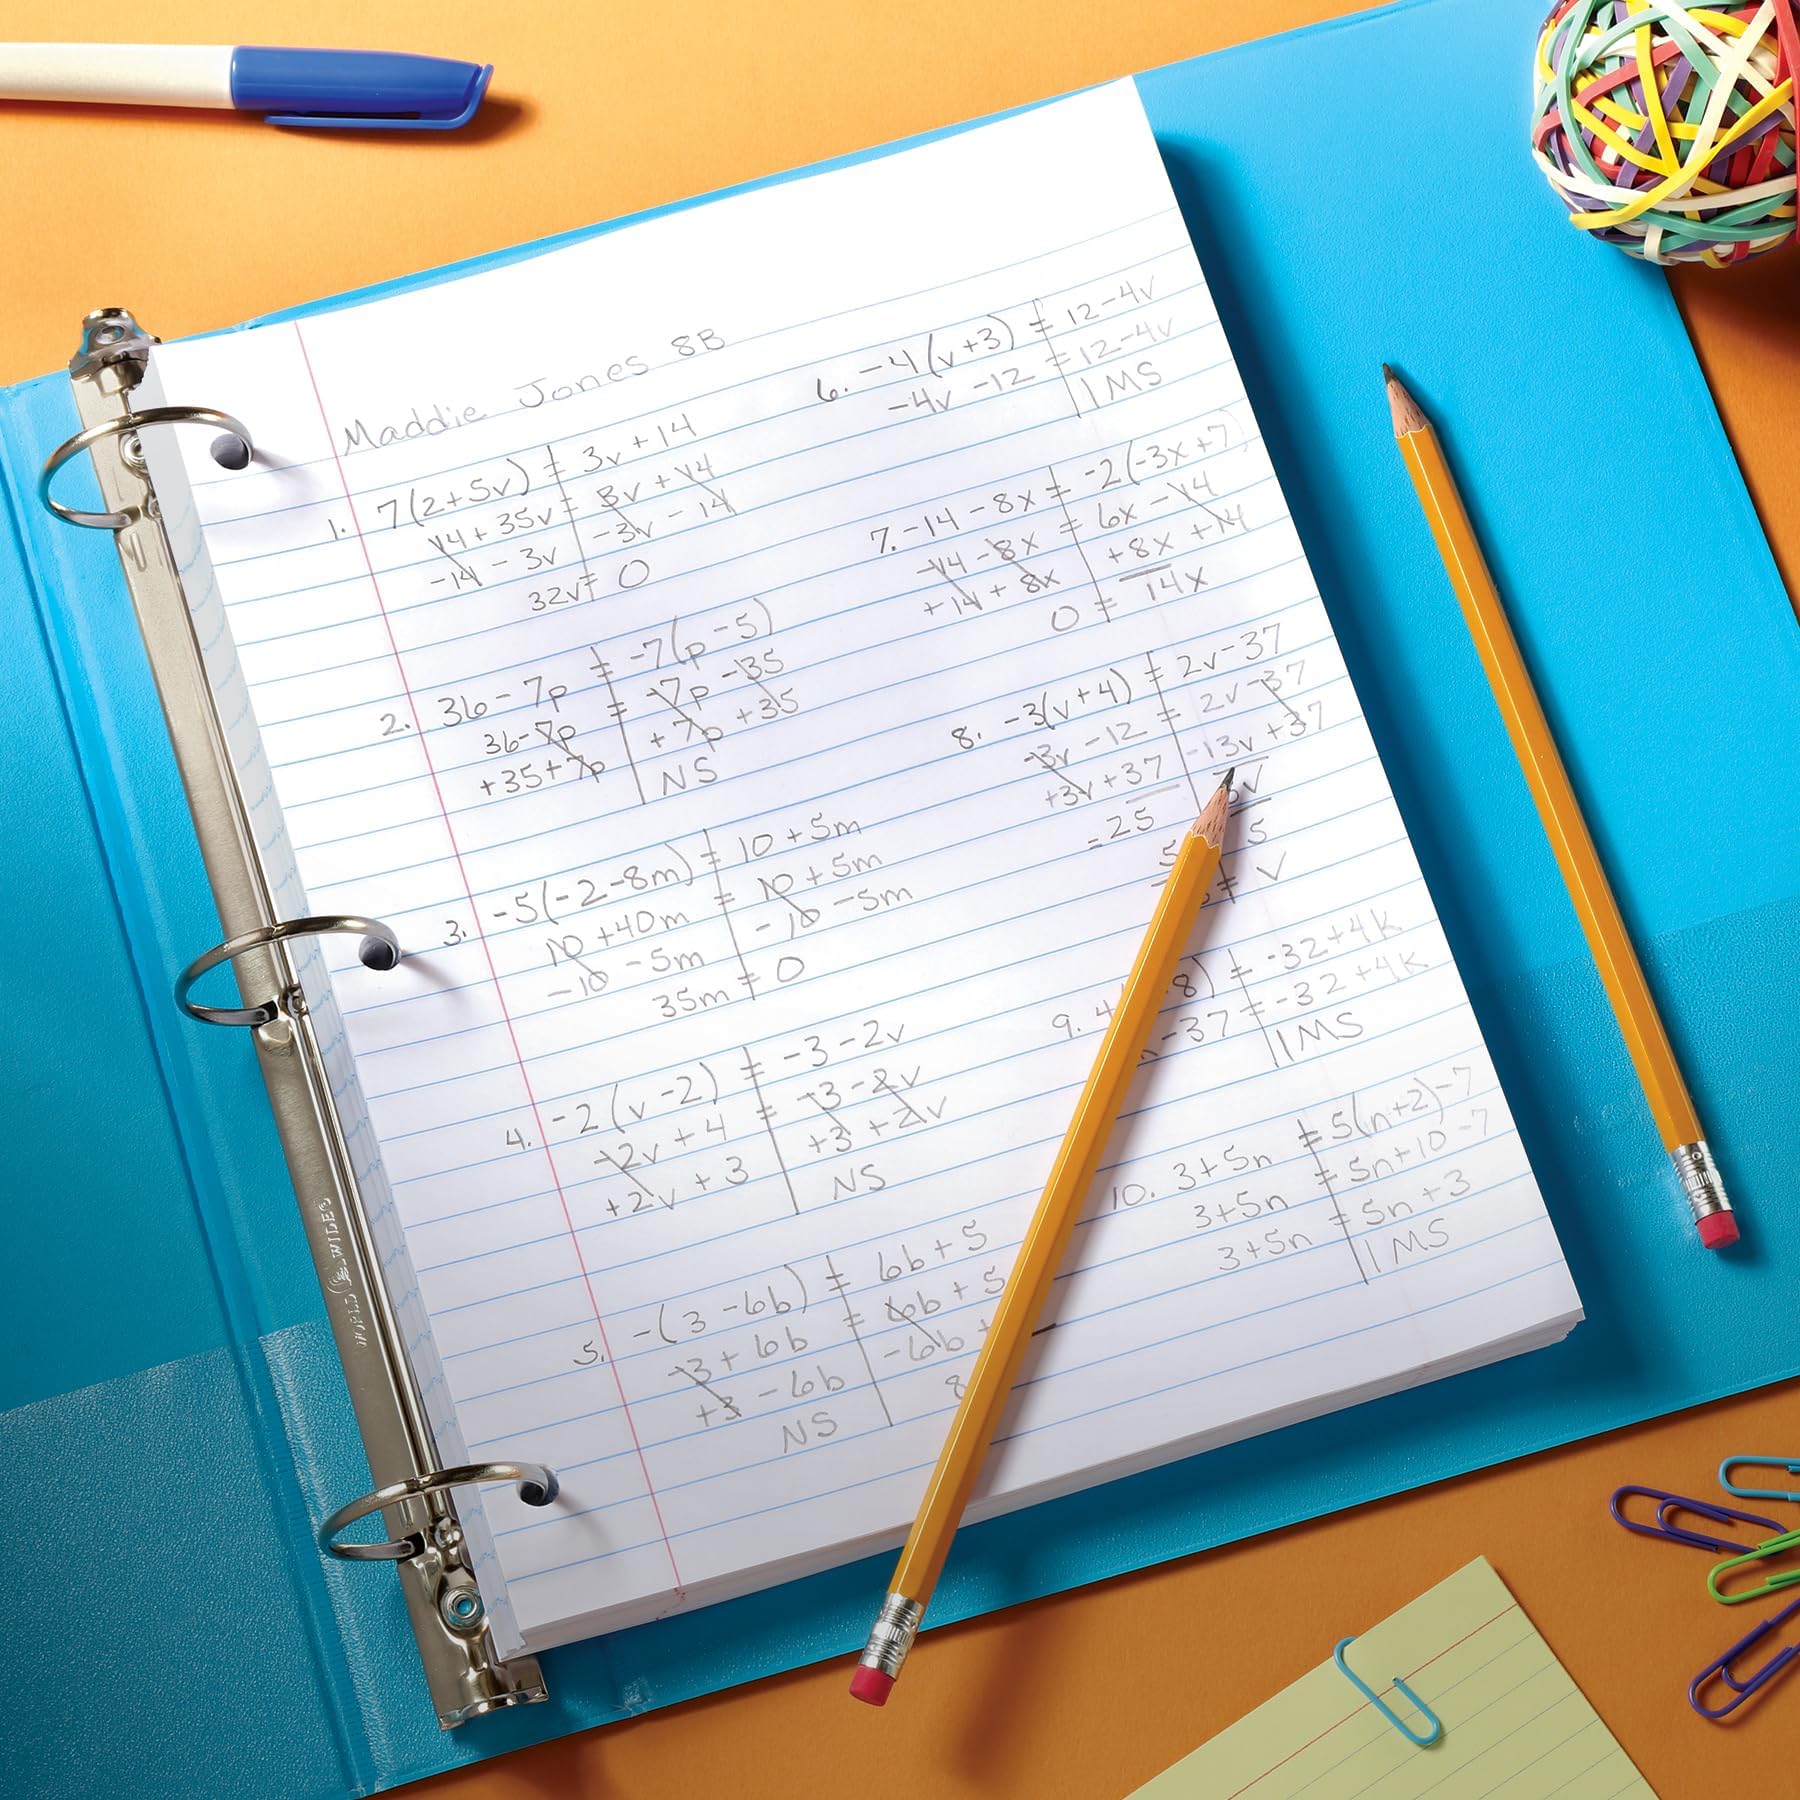 Maddie Jones 8B
1. 7(2+5v) = 3v + 14
14 + 35v = 3v + 14
-14 - 3v -3v - 14
32v = 0
2. 36 - 7p = -7(p - 5)
36 - 7p = -7p - 35
+35 + 7p + 7p + 35
NS
3. -5(-2 - 8m) = 10 + 5m
10 + 40m = 10 + 5m
-10 - 5m - 10 - 5m
35m = 0
4. -2(v - 2) = -3 - 2v
-2v + 4 = -3 - 2v
+2v + 3 +3 + 2v
NS
5. -(3 - 6b) = 6b + 5
-3 + 6b = 6b + 5
+3 - 6b -6b +
NS 8
6. -4(v+3) = 12 - 4v
-4v - 12 = 12 - 4v
IMS
7. -14 - 8x = -2(-3x + 7)
-14 - 8x = 6x - 14
+14 + 8x +8x + 14
0 = 14x
8. -3(v+4) = 2v - 37
-3v - 12 = 2v - 37
+3v + 37 -13v + 37
= 25 5v
5 5
= v
9. 4 8) = -32 + 4k
-37 = -32 + 4k
IMS
10. 3 + 5n = 5(n+2) - 7
3 + 5n = 5n + 10 - 7
3 + 5n = 5n + 3
IMS
WORLD WIDE